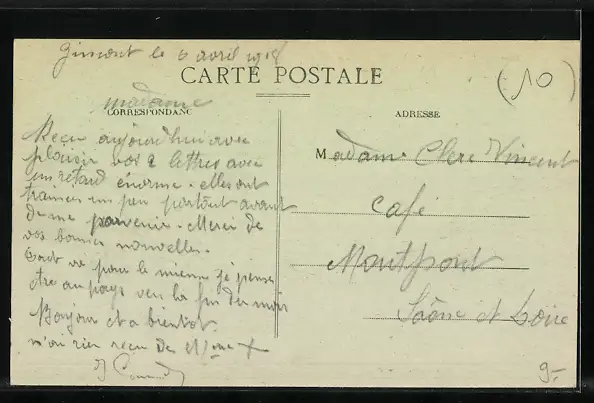 Gimont le 6 avril 1918
CARTE POSTALE
(10)
CORRESPONDANCE
Madame
Reçu aujourd'hui avec
plaisir vos 2 lettres avec
un retard énorme. elles ont
trainées un peu partout avant
de me parvenir. Merci de
vos bonnes nouvelles.
Tout va pour le mieux je pense
être au pays vers la fin du mois
Bonjour et a bientot.
n'ai rien reçu de
ADRESSE
Madame Chre Vincent
Café
Montpont
Saône et Loire
9-